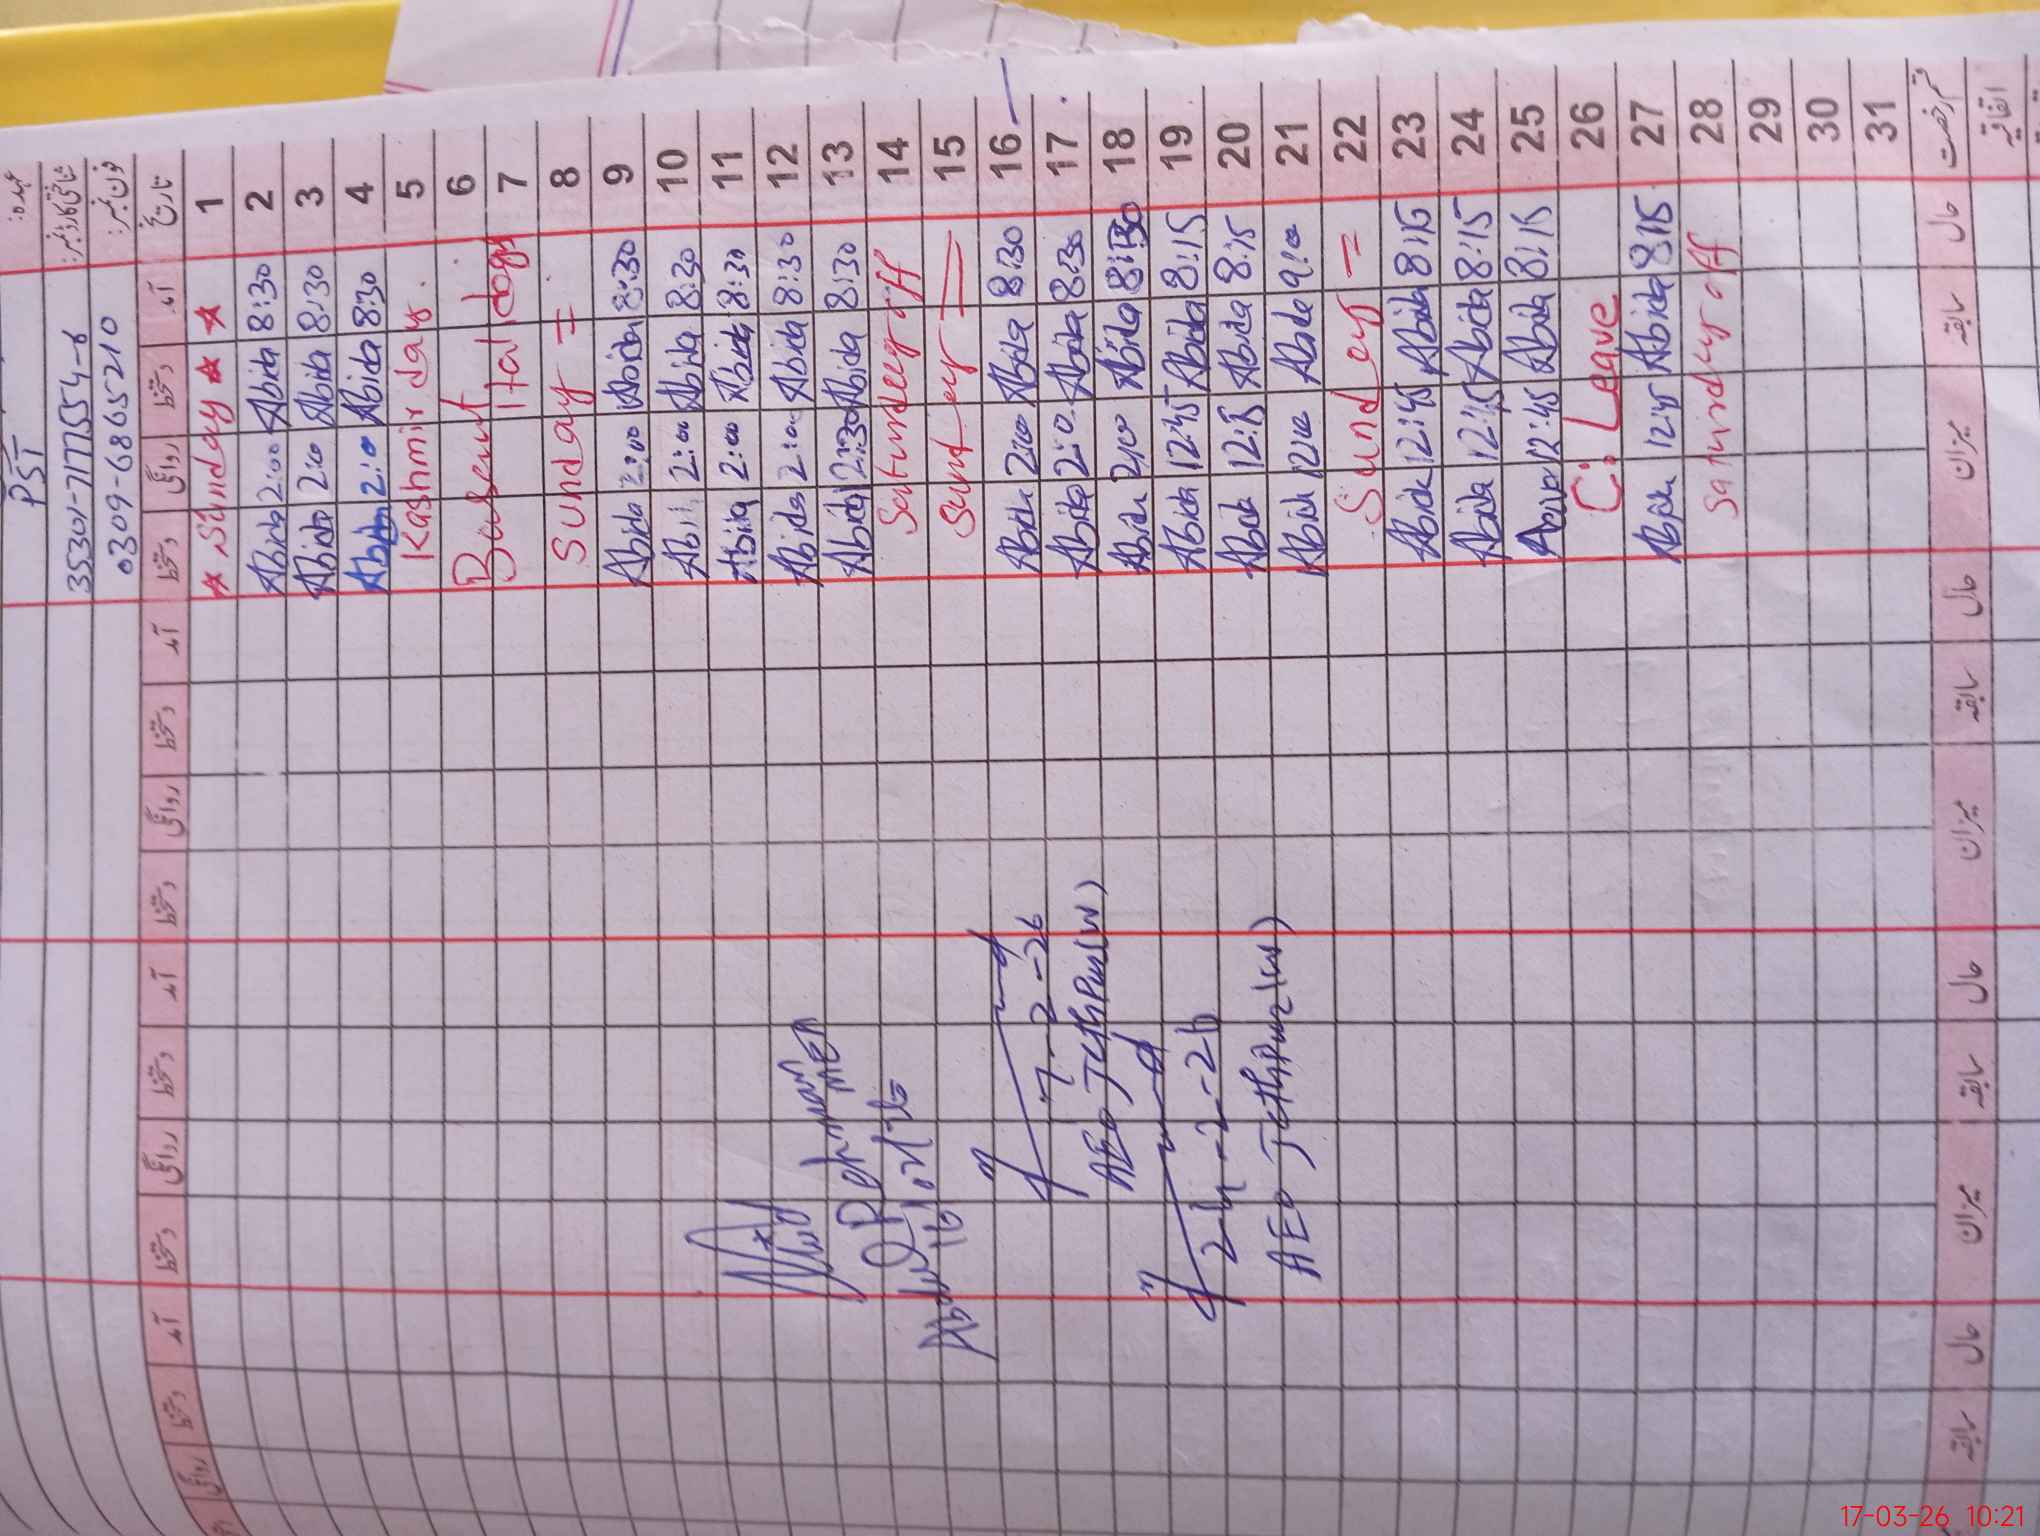 عہدہ: PST
شناختی کارڈ نمبر: 35301-7177554-8
فون نمبر: 0309-6865210
تاریخ آمد دستخط روانگی دستخط آمد دستخط روانگی دستخط آمد دستخط روانگی دستخط آمد دستخط روانگی
1 Sunday
2 8:30 Abida 2:00 Abida
3 8:30 Abida 2:00 Abida
4 8:30 Abida 2:0 Abida
5 Kashmir day.
6 Basent
7
8 Sunday =
9 8:30 Abida 2:00 Abida
10 8:30 Abida 2:00
11 8:30 Abida 2:00 Abida
12 8:30 Abida 2:00 Abida
13 8:30 Abida 12:30 Abida
14 off
15
16 8:30 Abida 2:00 Abida
17 8:30 Abida 2:0 Abida
18 8:30 Abida 2:00 Abida
19 8:15 Abida 12:45 Abida
20 8:15 Abida Abida
21 9:00 Abida 12:00 Abida
22 Sunday =
23 8:15 Abida 12:45 Abida
24 8:15 Abida 12:45 Abida
25 8:15 Abida 12:45 Abida
26 C: Leave
27 8:15 Abida 12:45 Abida
28 Saturday off
29
30
31
قسم رخصت حال سابقہ میزان حال سابقہ میزان حال سابقہ میزان حال سابقہ
اتفاقیہ
Rehman
AEO Jethpur (W)
24-2-26
AEO Jethpur (W)
17-03-26 10:21